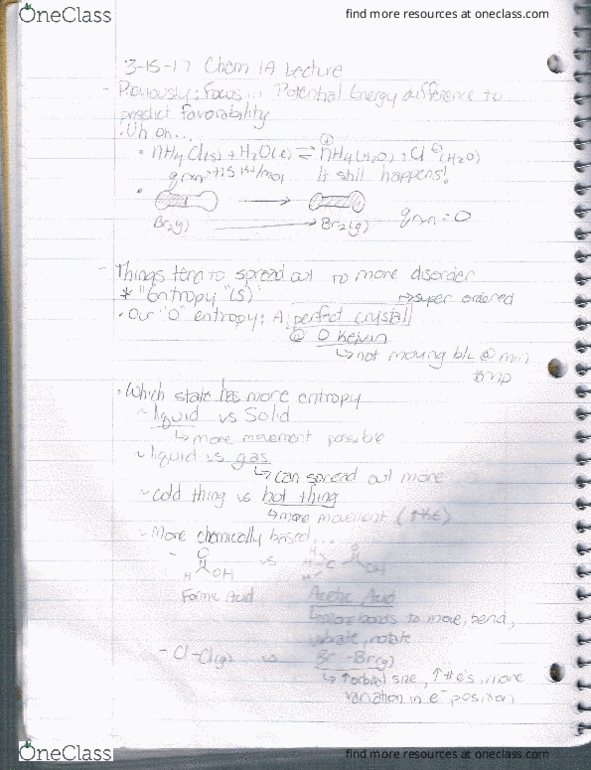 OneClass
find more resources at oneclass.com
3-15-17 Chem 1A Lecture
- Previously: Focus... Potential Energy difference to
predict favorability
· Uh oh...
· NH4Cl(s) + H2O(l) ⇌ NH4⊕(H2O) + Cl⊖(H2O)
q rxn = +15 kJ/mol It still happens!
Br2(g) → Br2(g) q rxn = 0
- Things tend to spread out to more disorder
* "Entropy" (S)
↳ super ordered
· Our "0" entropy: A perfect crystal
@ 0 Kelvin
↳ not moving b/c @ min
temp
· Which state has more entropy
~ liquid vs Solid
↳ more movement possible
~ liquid vs gas
↳ can spread out more
~ cold thing vs hot thing
↳ more movement (↑KE)
~ More chemically based...
- H OH vs H C OH
Formic Acid Acetic Acid
↳ more bonds to move, bend,
vibrate, rotate
- Cl-Cl(g) vs Br-Br(g)
↳ ↑orbital size, ↑#e's, more
variation in e⁻ position
OneClass
find more resources at oneclass.com